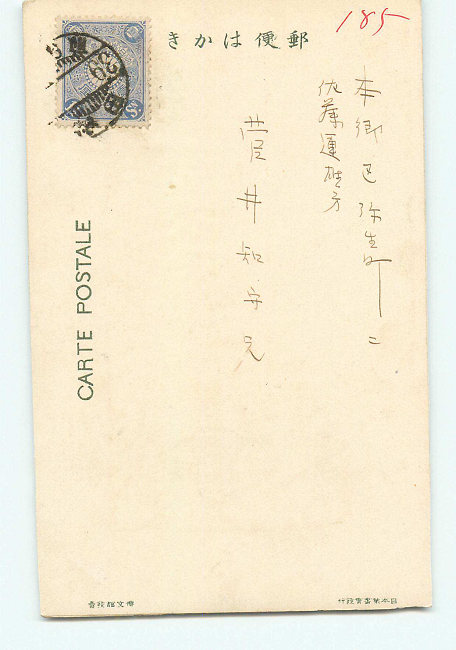 185
きかは便郵
本郷区弥生町二
佐藤運雄方
菅井知守兄
CARTE POSTALE